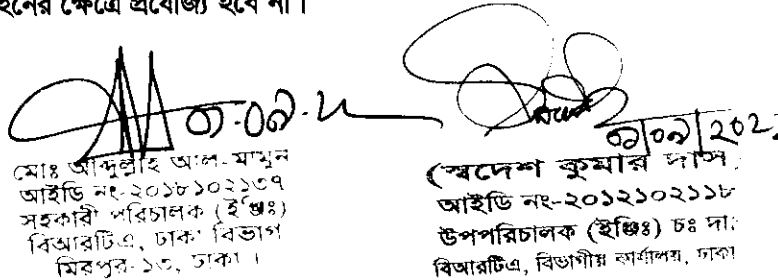 ক্ষেত্রে প্রযোজ্য হবে না।
মোঃ আব্দুল্লাহ আল-মামুন
আইডি নং-২০১৮১০২১৩৭
সহকারী পরিচালক (ইঞ্জিঃ)
বিআরটিএ, ঢাকা বিভাগ
মিরপুর-১৩, ঢাকা।
(স্বদেশ কুমার দাস)
আইডি নং-২০১২১০২১১৮
উপপরিচালক (ইঞ্জিঃ) চঃ দাঃ
বিআরটিএ, বিভাগীয় কার্যালয়, ঢাকা